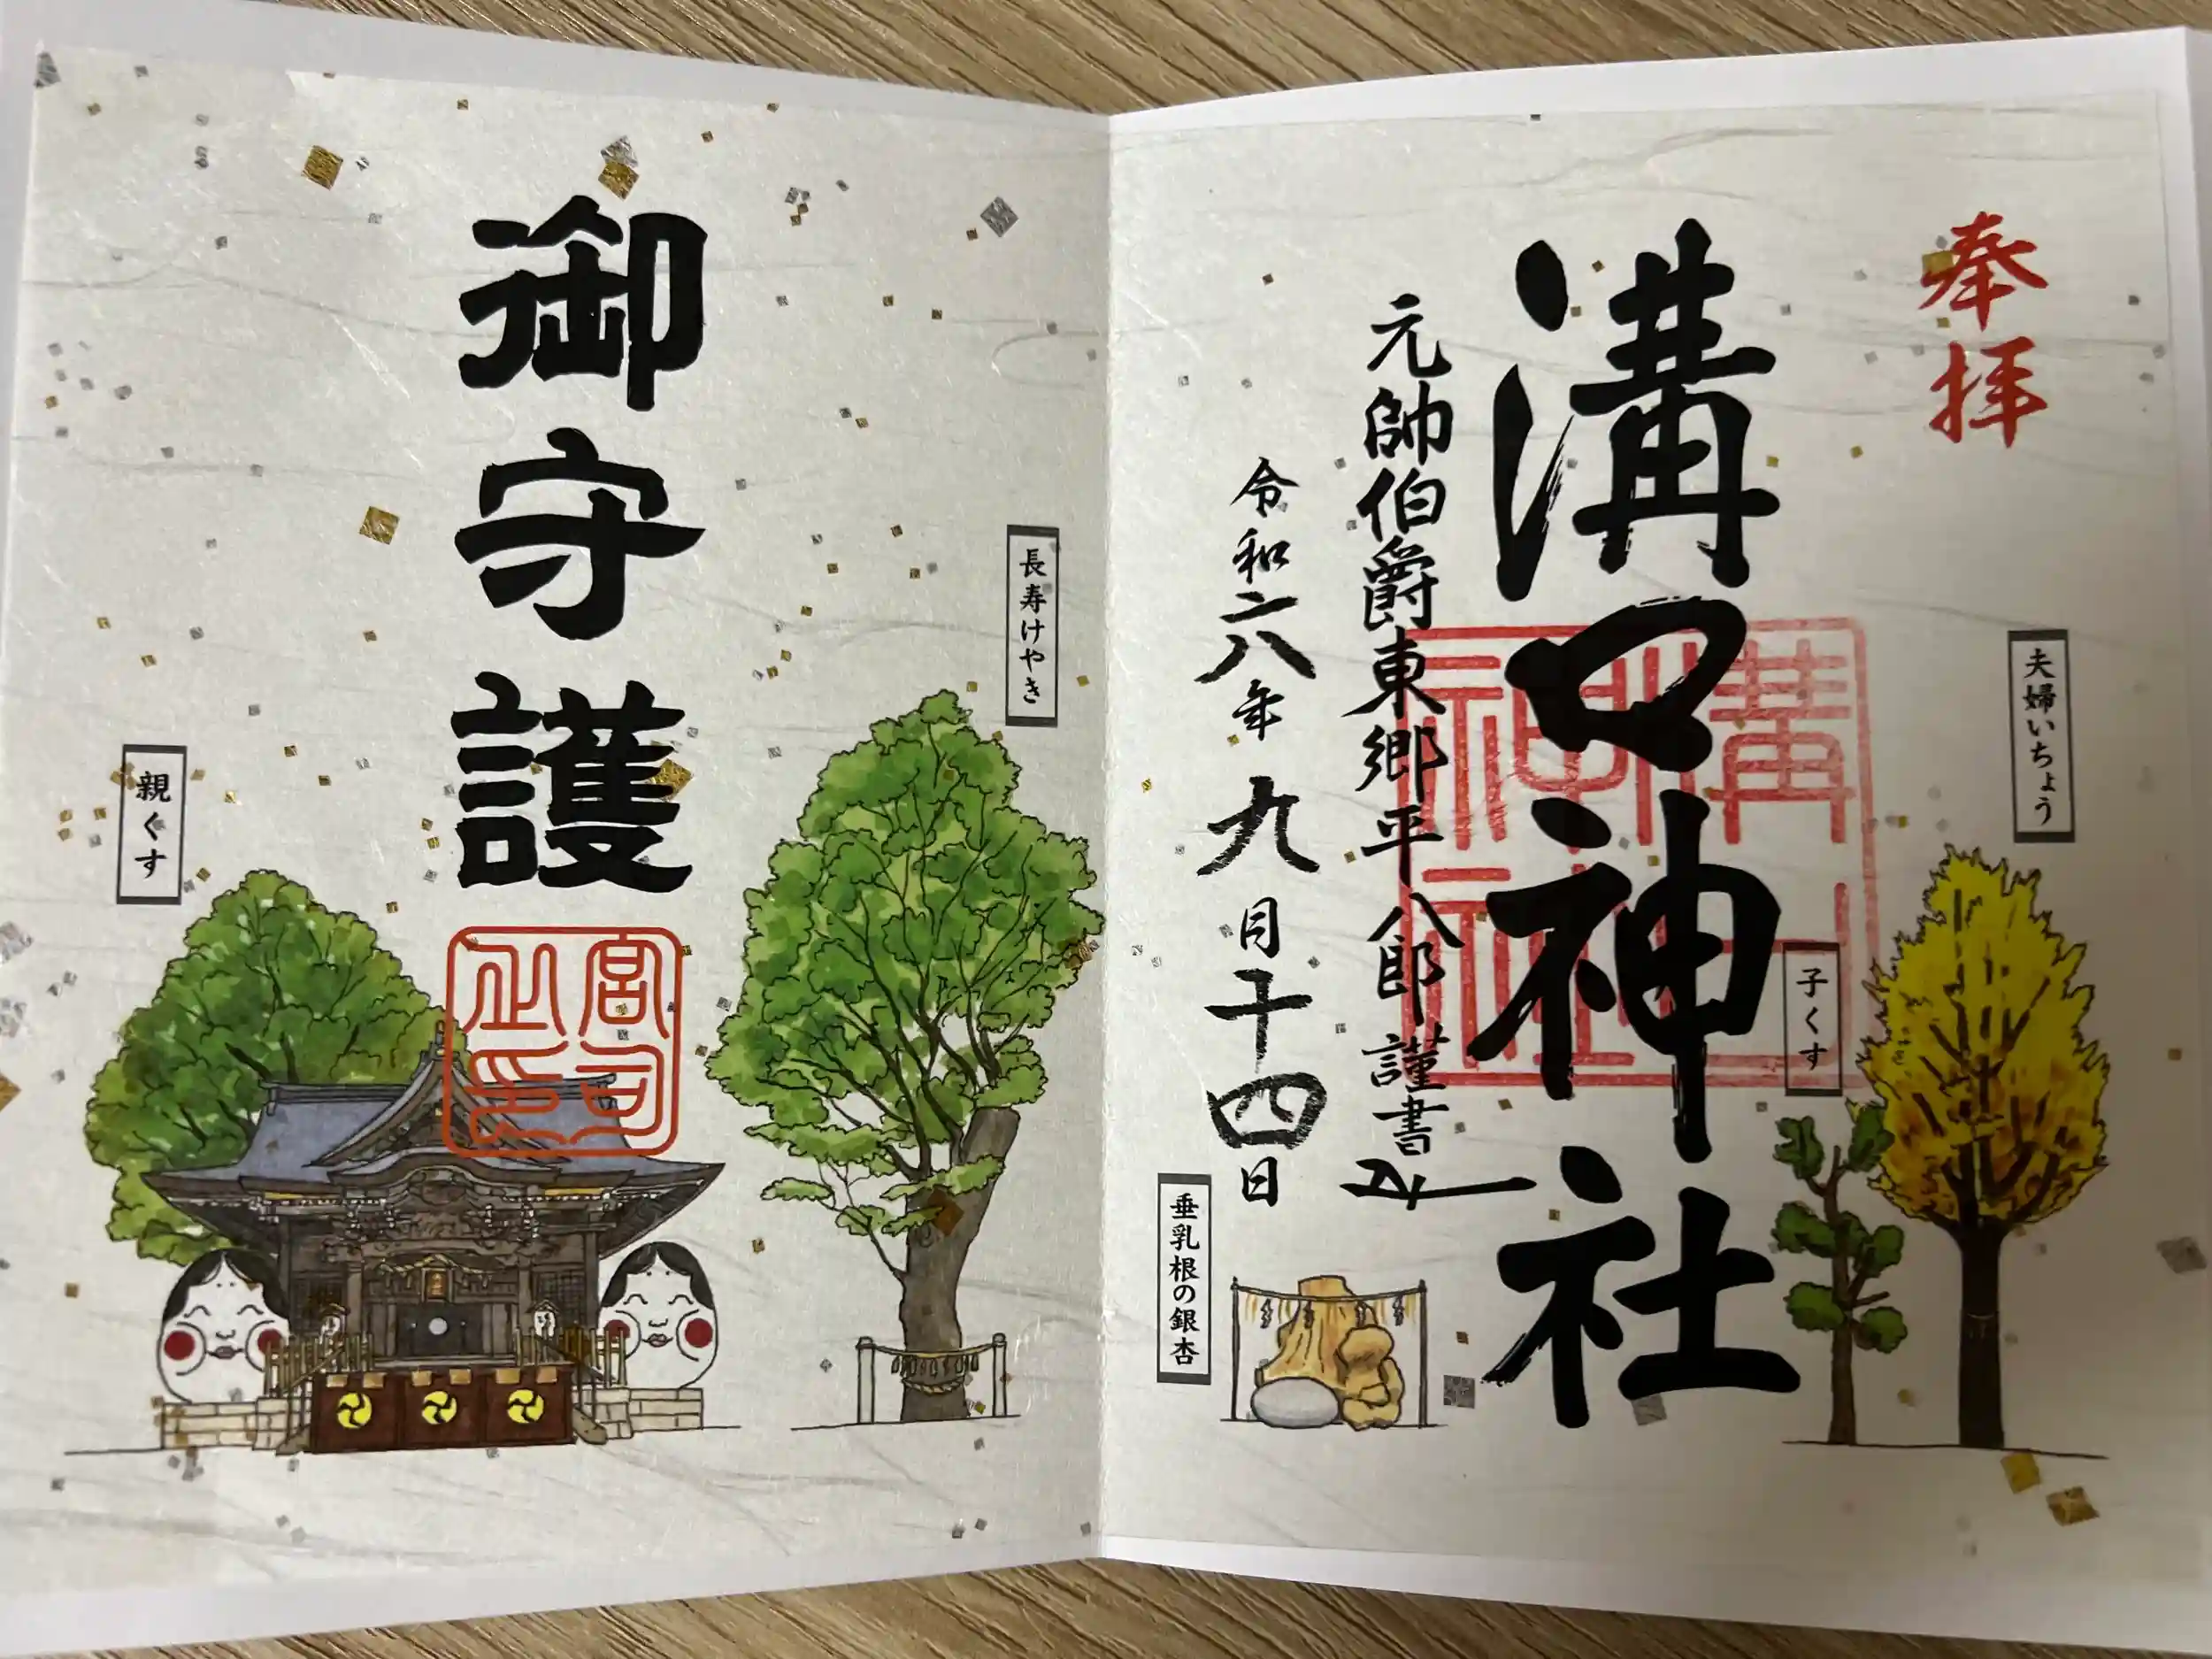 奉拝
夫婦いちょう
子くす
溝口神社
元帥伯爵東郷平八郎謹書
令和六年九月十四日
垂乳根の銀杏
長寿けやき
御守護
宮司之印
親くす